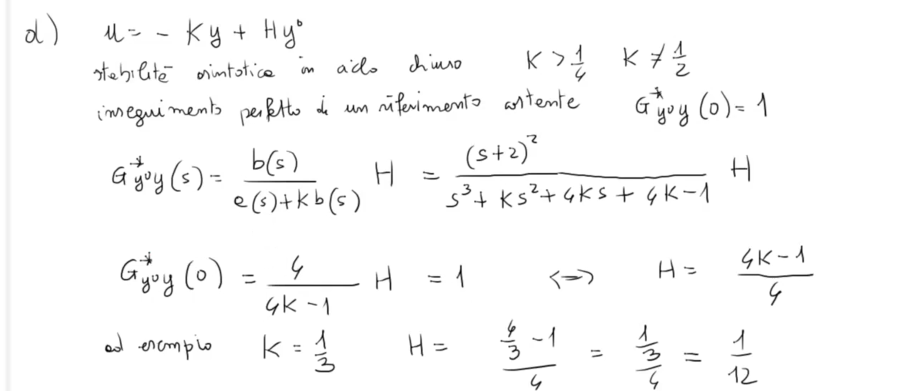 d) u = - Ky + Hy°
stabilità asintotica in ciclo chiuso K > 1/4 K ≠ 1/2
inseguimento perfetto di un riferimento costante G*y°y (0) = 1
G*y°y (s) = b(s) / (a(s)+Kb(s)) H = (s+2)² / (s³ + Ks² + 4Ks + 4K-1) H
G*y°y (0) = 4 / (4K-1) H = 1 <=> H = (4K-1) / 4
ad esempio K = 1/3 H = (4/3 - 1) / 4 = (1/3) / 4 = 1/12